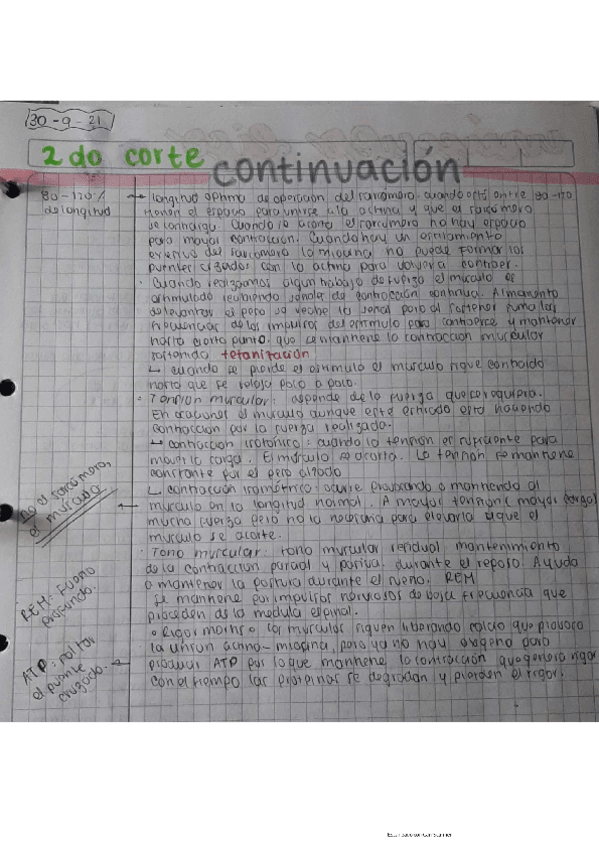 30-9-21
2do corte
continuación
80-120%
de longitud
→ longitud optima de operación del sarcómero: cuando está entre 80-120
tienen el espacio para unirse a la actina y que el sarcómero
se contraiga. Cuando se acorta el sarcómero no hay espacio
para mayor contracción. Cuando hay un estiramiento
excesivo del sarcómero la miosina no puede formar los
puentes cruzados con la actina para volver a contraer.
· Cuando realizamos algun trabajo de fuerza el músculo es
estimulado recibiendo señales de contracción continua. Al momento
de levantar el peso se recibe la señal para al sostener suma las
frecuencias de los impulsos del estimulo para contraerse y mantener
hasta cierto punto. que se mantiene la contraccion muscular
sostenida tetanización
↳ cuando se pierde el estimulo el musculo sigue contraido
hasta que se relaja poco a poco.
· Tension muscular: depende de la fuerza que se requiera.
En ocasiones el musculo aunque este estirado está haciendo
contraccion por la fuerza realizada.
↳ contraccion isotónica: cuando la tensión es suficiente para
mover la carga. El músculo se acorta. La tension se mantiene
constante por el peso alzado
↳ contracción isométrica: ocurre empujando o manteniendo al
músculo en la longitud normal. A mayor tension (mayor carga)
mucha fuerza pero no la necesaria para elevarla y que el
musculo se acorte.
No es sarcómero,
el músculo
· Tono muscular: tono muscular residual, mantenimiento
de la contraccion parcial y pasiva durante el reposo. Ayuda
a mantener la postura durante el sueño. REM
REM = sueño
profundo.
Se mantiene por impulsos nerviosos de baja frecuencia que
proceden de la medula espinal.
• Rigor mortis: los musculos siguen liberando calcio que provoca
la union actina-miosina, pero ya no hay oxigeno para
producir ATP por lo que mantiene la contracción que genera rigor
con el tiempo las proteinas se degradan y pierden el rigor.
ATP = soltar
el puente
cruzado.